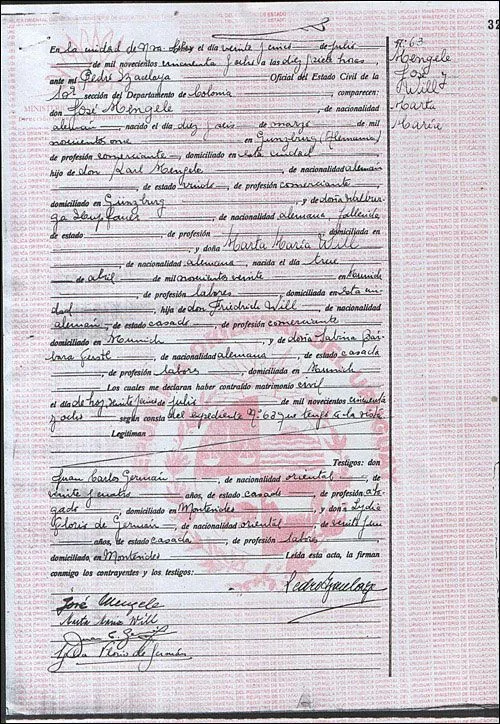 32
En la ciudad de Nva. Helvecia el día veinte y cinco de Julio
de mil novecientos cincuenta y ocho a las diez y siete horas,
ante mí Pedro Izaulaga Oficial del Estado Civil de la
10ª sección del Departamento de Colonia, comparecen:
don José Mengele, de nacionalidad
alemán, nacido el día diez y seis de marzo de mil
novecientos once en Gunzburg (Alemania)
de profesión comerciante, domiciliado en esta ciudad
hijo de don Karl Mengele, de nacionalidad alemán
, de estado viudo, de profesión comerciante,
domiciliado en Gunzburg, y de doña Walbur-
ga Hupfauer, de nacionalidad alemana, fallecida
de estado, de profesión domiciliada en
, y doña Marta María Will
de nacionalidad alemana, nacida el día trece
de abril de mil novecientos veinte en Munich
, de profesión labores, domiciliada en esta ciu-
dad, hija de don Friedrich Will, de nacionalidad
alemán, de estado casado, de profesión comerciante
domiciliado en Munich, y de doña Sabina Bár-
bara, de nacionalidad alemana, de estado casada
, de profesión labores, domiciliada en Munich
Los cuales me declaran haber contraído matrimonio civil
el día de hoy, veinte y cinco de julio de mil novecientos cincuenta
y ocho según consta del expediente Nº 63 que tengo a la vista
Legitiman
Testigos: don
Juan Carlos Germán, de nacionalidad oriental, de
veinte y años, de estado casado, de profesión abo-
gado domiciliado en Montevideo, y doña Lydia
Floris de Germán, de nacionalidad oriental, de veinte y
años, de estado casada, de profesión labores,
domiciliado, en Montevideo Leída esta acta, la firman
conmigo los contrayentes y los testigos:
Pedro Izaulaga
José Mengele
Marta María Will
Juan C. Germán
Lydia Floris de Germán
Nº 63
Mengele
José y
Will
Marta
María